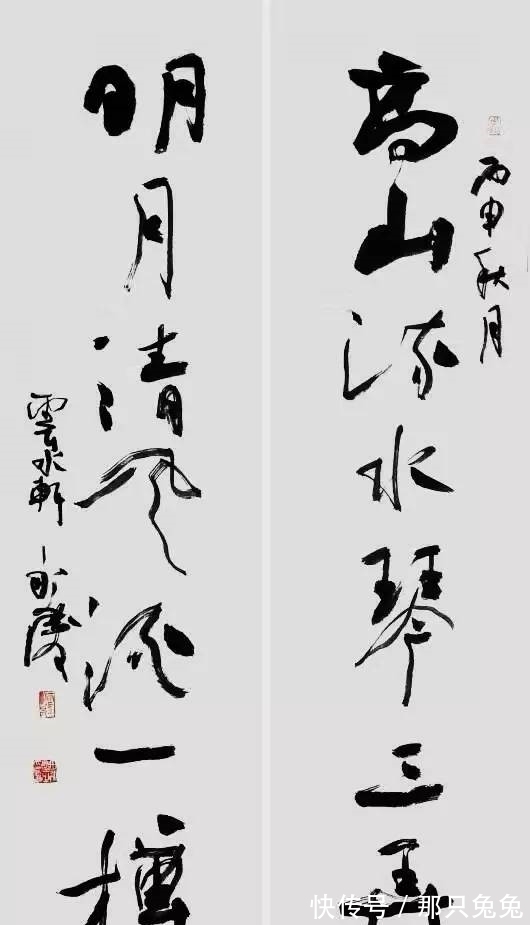 丙申秋月
高山流水琴三弄
明月清风酒一樽
雲水軒
快传号 / 那只兔兔